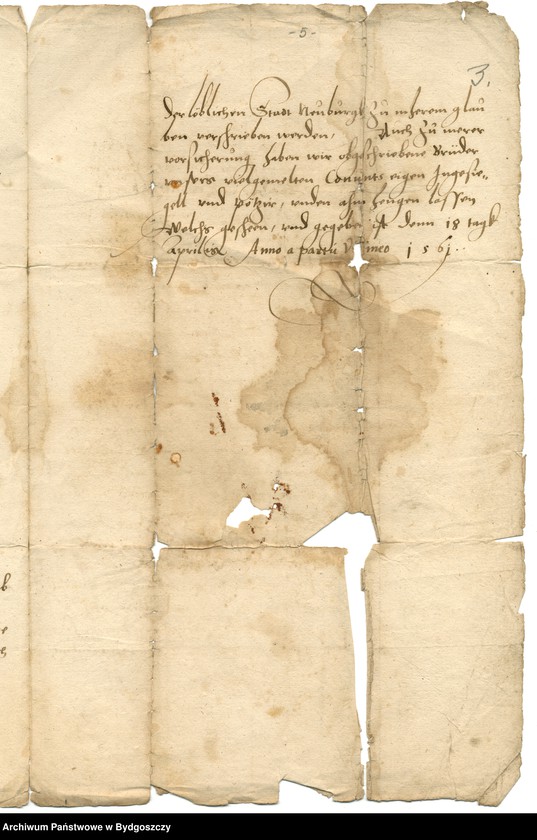 - 5 -
3.
der löblichen Stadt Neuburgk zu mherem glau
ben verschrieben werden, Auch zu merer
vorsicherung haben wir obgeschriebene Brüder
unsers vielgemelten Conuents eigen Ingesie„
gell vnd petzir, vnden ahn hengen lassen
Welchs gescheen, vnd gegeben ist denn 18 tagk
Aprilis Anno a partu 1561.
b
e
Archiwum Państwowe w Bydgoszczy